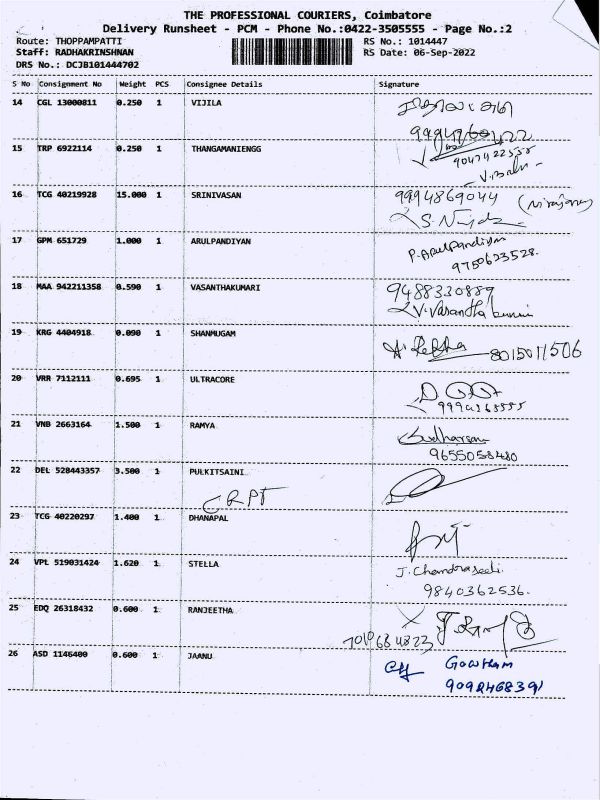 THE PROFESSIONAL COURIERS, Coimbatore
Delivery Runsheet - PCM - Phone No.:0422-3505555 - Page No.:2
Route: THOPPAMPATTI RS No.: 1014447
Staff: RADHAKRINSHNAN RS Date: 06-Sep-2022
DRS No.: DCJB101444702
S No Consignment No Weight PCS Consignee Details Signature
14 CGL 13000811 0.250 1 VIJILA
15 TRP 6922114 0.250 1 THANGAMANIENGG
16 TCG 40219928 15.000 1 SRINIVASAN 9994869044
17 GPM 651729 1.000 1 ARULPANDIYAN P. Arulpandiyan
9750623528.
18 MAA 942211358 0.590 1 VASANTHAKUMARI 9488330889
V. Vasantha kumari
19 KRG 4404918 0.090 1 SHANMUGAM 8015011506
20 VRR 7112111 0.695 1 ULTRACORE
21 VNB 2663164 1.500 1 RAMYA Sudharsan
9655058480
22 DEL 528443357 3.500 1 PULKITSAINI
CRPF
23 TCG 40220297 1.400 1 DHANAPAL
24 VPL 519031424 1.620 1 STELLA J. Chandraseeli
9840362536.
25 EDQ 26318432 0.600 1 RANJEETHA
26 ASD 1146400 0.600 1 JAANU Gowtham
9092468391